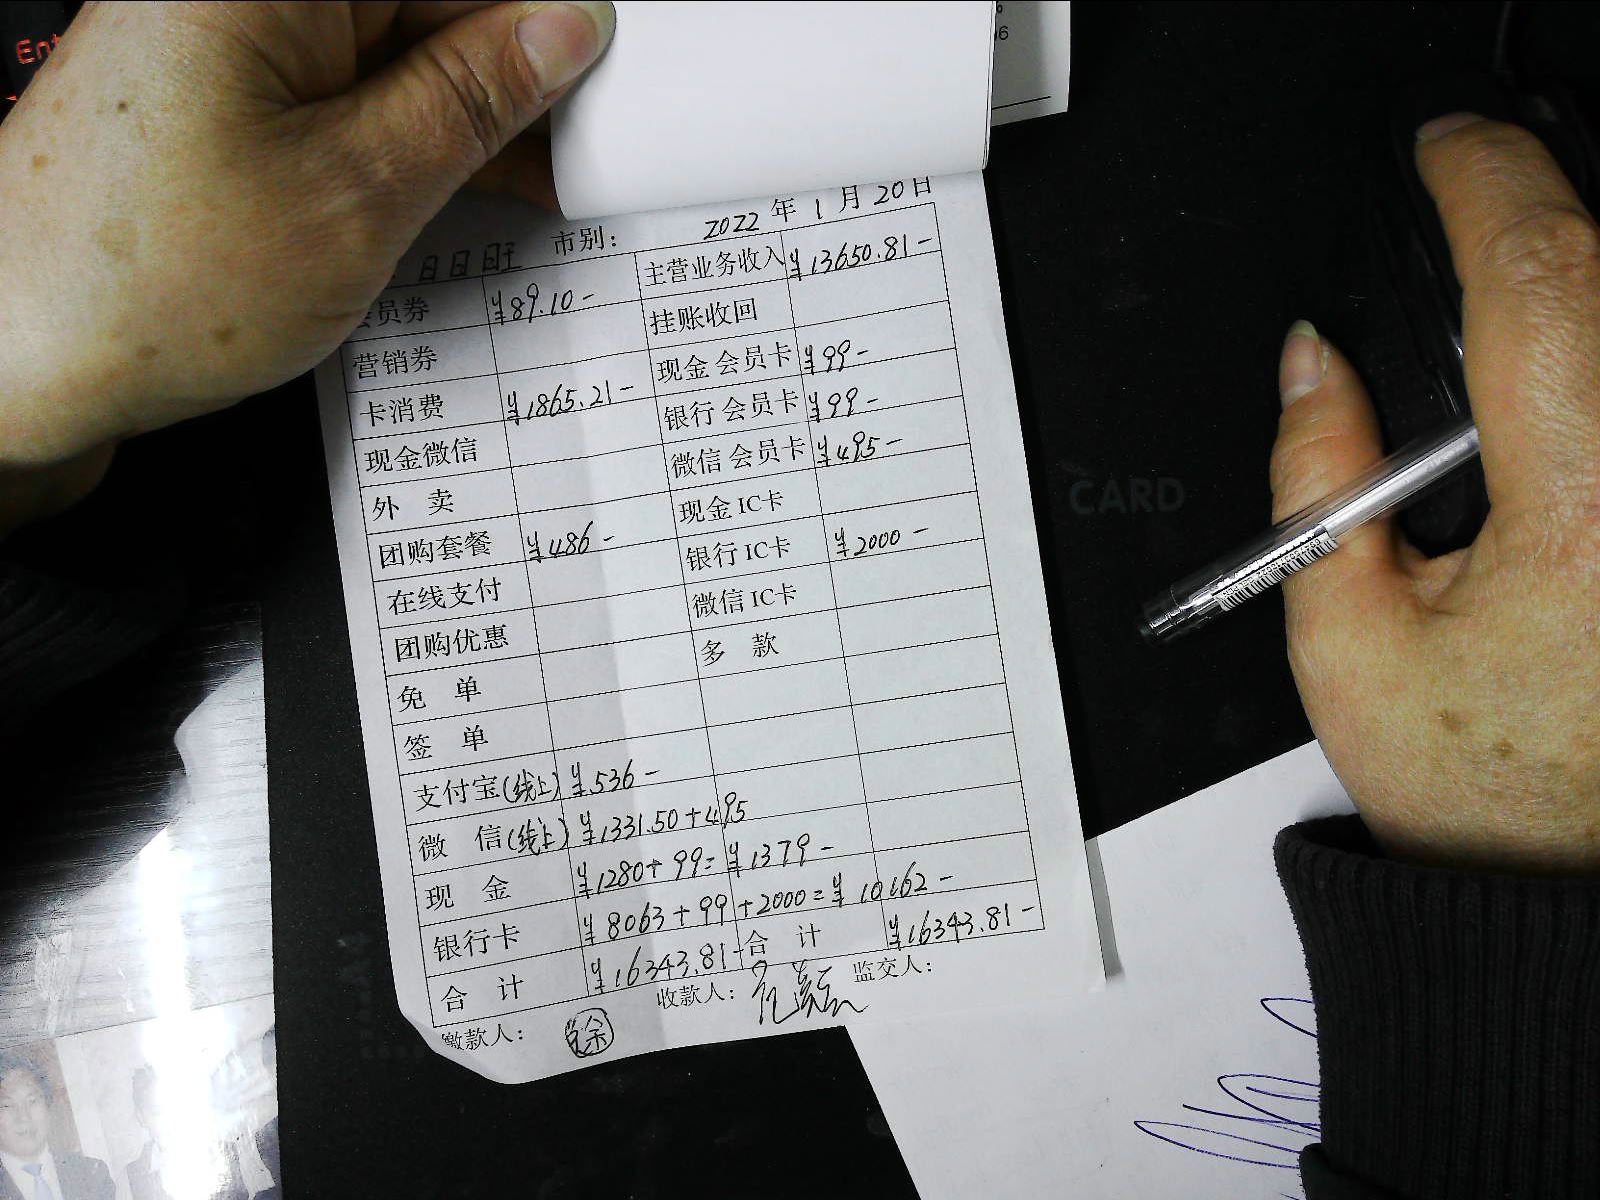 Ent
96
2022年1月20日
市别：
日日旺
员券 ¥89.10- 主营业务收入 ¥13650.81-
营销券 挂账收回
卡消费 ¥1865.21- 现金会员卡 ¥99-
现金微信 银行会员卡 ¥99-
外 卖 微信会员卡 ¥495-
团购套餐 ¥486- 现金IC卡
在线支付 银行IC卡 ¥2000-
团购优惠 微信IC卡
免 单 多 款
签 单
支付宝(线上) ¥536-
微 信(线上) ¥1331.50+495
现 金 ¥1280+99=¥1379-
银行卡 ¥8063+99+2000=¥10162-
合 计 ¥16343.81- 合 计 ¥16343.81-
缴款人： 收款人： 监交人：
CARD